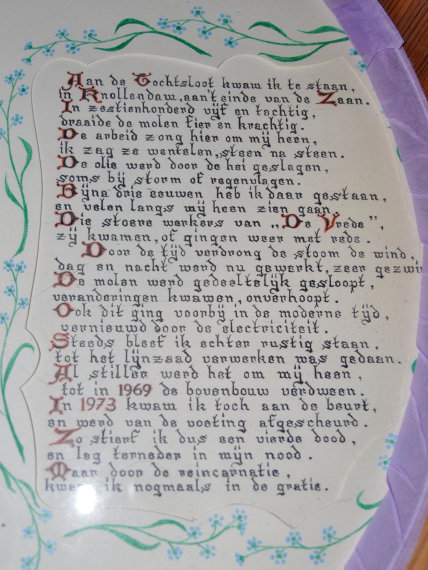 Aan de Tochtsloot kwam ik te staan,
in Knollendam, aan't einde van de Zaan.
In zestienhonderd vijf en tachtig,
draaide de molen fier en krachtig.
De arbeid zong hier om mij heen,
ik zag ze wentelen, steen na steen.
De olie werd door de hei geslagen,
soms bij storm of regenvlagen.
Bijna drie eeuwen heb ik daar gestaan,
en velen langs mij heen zien gaan.
Die stoere werkers van „De Vrede",
zij kwamen, of gingen weer met rede.
Door de tijd verdrong de stoom de wind,
dag en nacht werd nu gewerkt, zeer gezwin
De molen werd gedeeltelijk gesloopt,
veranderingen kwamen, onverhoopt.
Ook dit ging voorbij in de moderne tijd,
vernieuwd door de electriciteit.
Steeds bleef ik echter rustig staan,
tot het lijnzaad verwerken was gedaan.
Al stiller werd het om mij heen,
tot in 1969 de bovenbouw verdween.
In 1973 kwam ik toch aan de beurt,
en werd van de voeting afgescheurd.
Zo stierf ik dus een vierde dood,
en lag terneder in mijn nood.
Maar door de reincarnatie,
kwam ik nogmaals in de gratie.